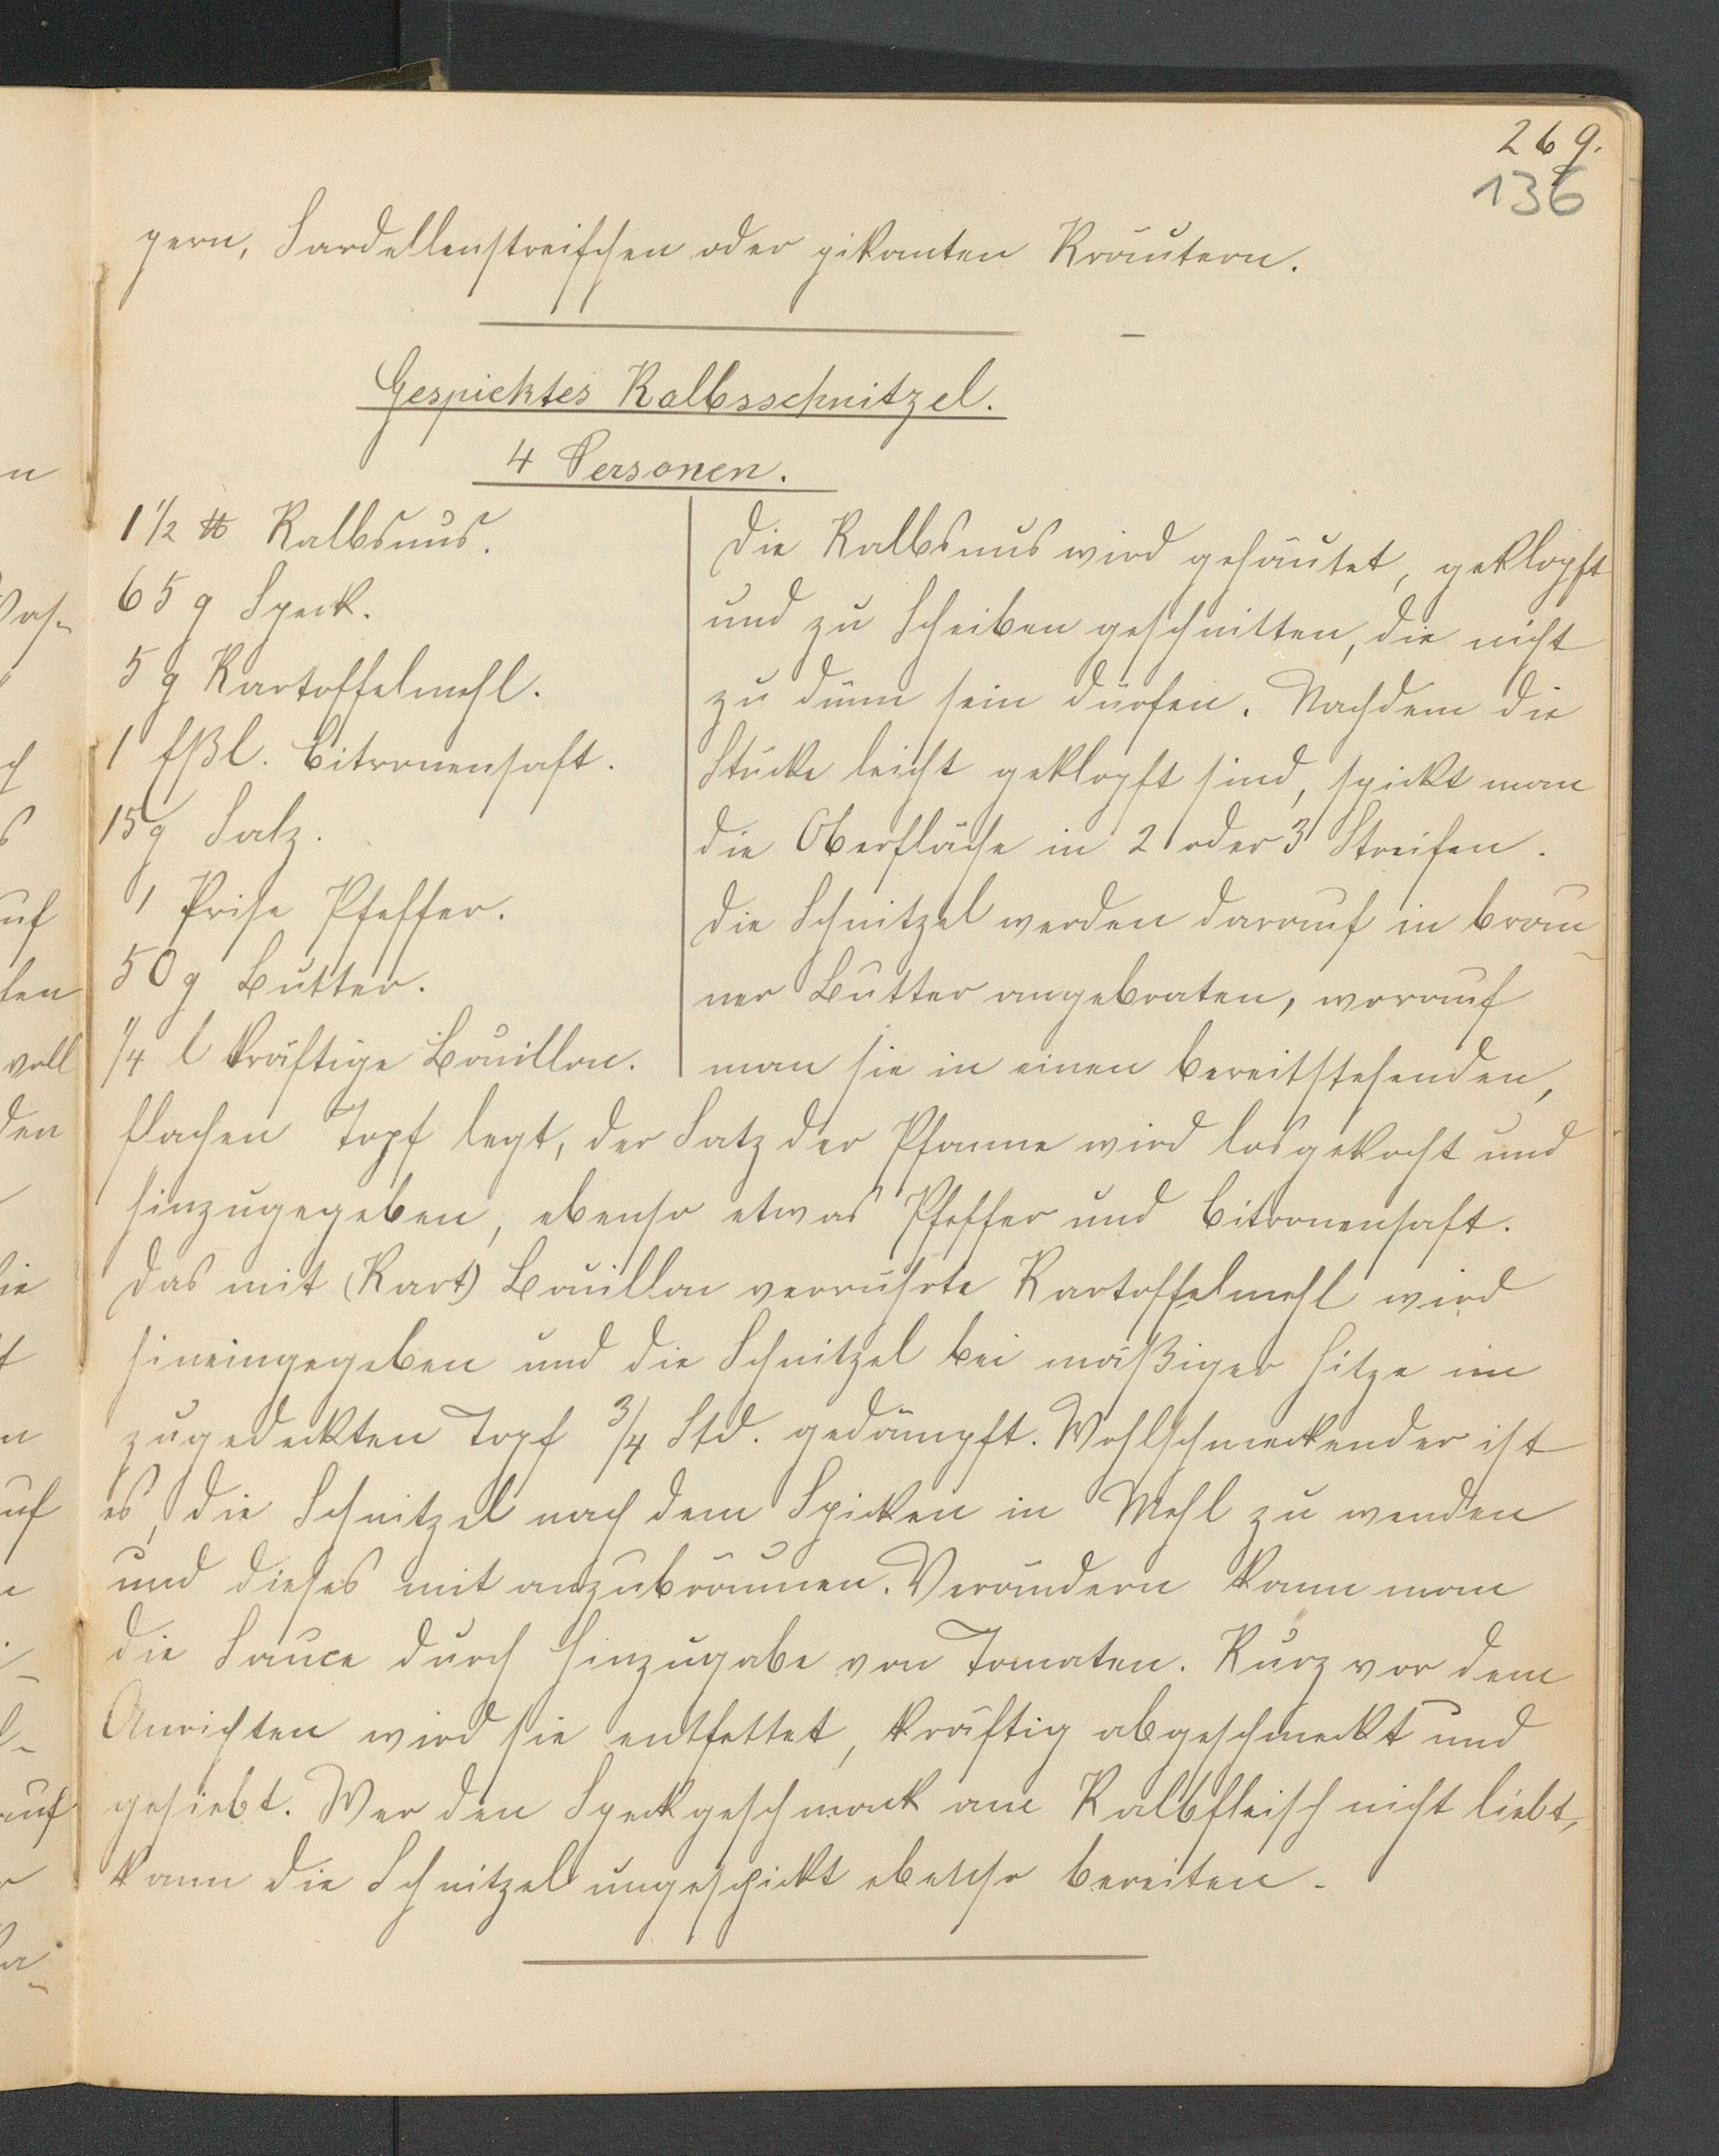 269.
136
pern, Sardellenstreifchen oder pikanten Kräutern.
Gespicktes Kalbsschnitzel.
4 Personen.
1 1/2 ℔ Kalbsnus.
65 g Speck.
5 g Kartoffelmehl.
1 Eßl. Citronensaft.
15 g Salz.
1 Prise Pfeffer.
50 g Butter.
1/4 l kräftige Bouillon.
Die Kalbsnus wird gehäutet, geklopft
und zu Scheiben geschnitten, die nicht
zu dünn sein dürfen. Nachdem die
Stücke leicht geklopft sind, spickt man
die Oberfläche in 2 oder 3 Streifen.
Die Schnitzel werden darauf in brau-
ner Butter angebraten, worauf
man sie in einen bereitstehenden,
flachen Topf legt, der Satz der Pfanne wird losgekocht und
hinzugegeben, ebenso etwas Pfeffer und Citronensaft.
Das mit (Kart) Bouillon verrührte Kartoffelmehl wird
hineingegeben und die Schnitzel bei mäßiger Hitze im
zugedeckten Topf 3/4 Std. gedämpft. Wohlschmeckender ist
es, die Schnitzel nach dem Spicken in Mehl zu wenden
und dieses mit anzubräunen. Verändern kann man
die Sauce durch Hinzugabe von Tomaten. Kurz vor dem
Anrichten wird sie entfettet, kräftig abgeschmeckt und
gesiebt. Wer den Speckgeschmack am Kalbfleisch nicht liebt,
kann die Schnitzel ungespickt ebenso bereiten.